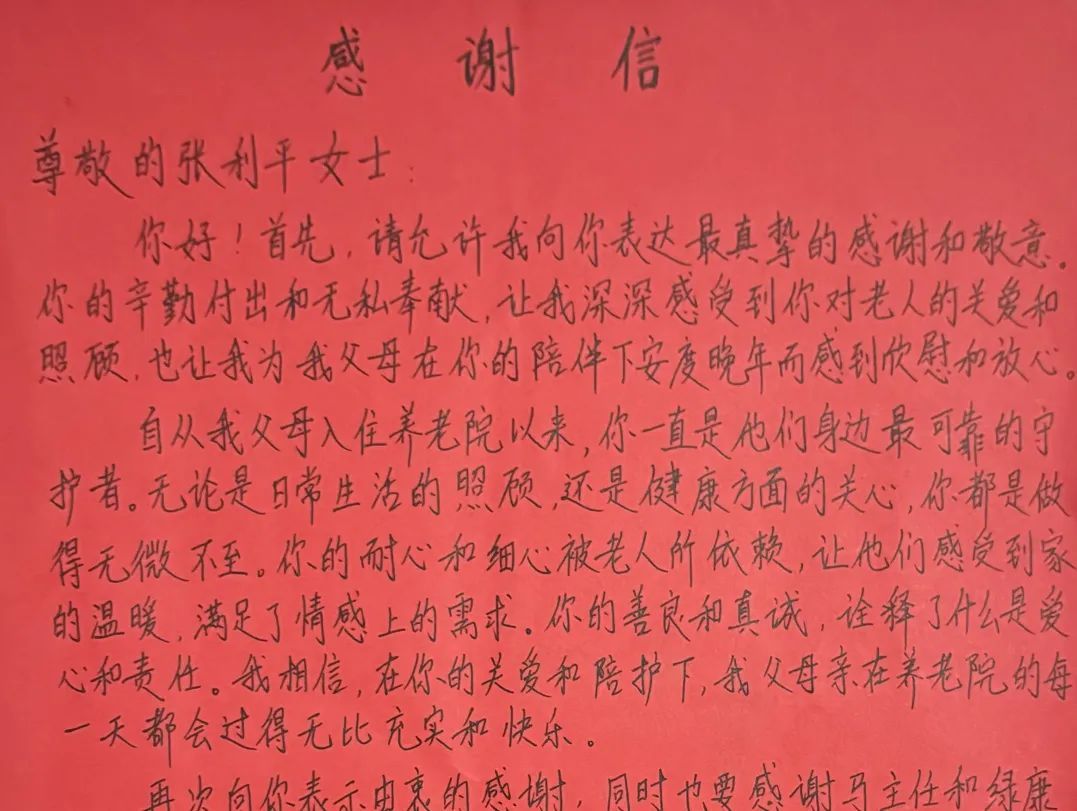 感谢信
尊敬的张利平女士:
你好!首先,请允许我向你表达最真挚的感谢和敬意。
你的辛勤付出和无私奉献,让我深深感受到你对老人的关爱和
照顾,也让我为我父母在你的陪伴下安度晚年而感到欣慰和放心。
自从我父母入住养老院以来,你一直是他们身边最可靠的守
护者。无论是日常生活的照顾,还是健康方面的关心,你都是做
得无微不至。你的耐心和细心被老人所依赖,让他们感受到家
的温暖,满足了情感上的需求。你的善良和真诚,诠释了什么是爱
心和责任。我相信,在你的关爱和陪护下,我父母亲在养老院的每
一天都会过得无比充实和快乐。
再次向你表示由衷的感谢,同时也要感谢马主任和绿康